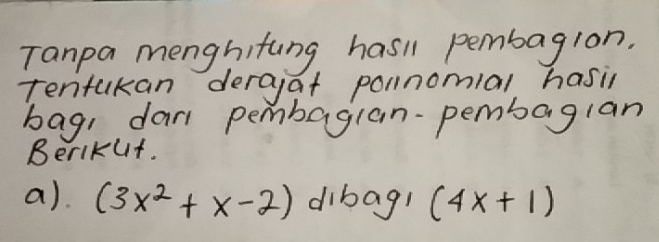 Tanpa menghitung hasil pembagian,
Tentukan derajat polinomial hasil
bagi dari pembagian-pembagian
Berikut.
a). (3x² + x - 2) dibagi (4x + 1)